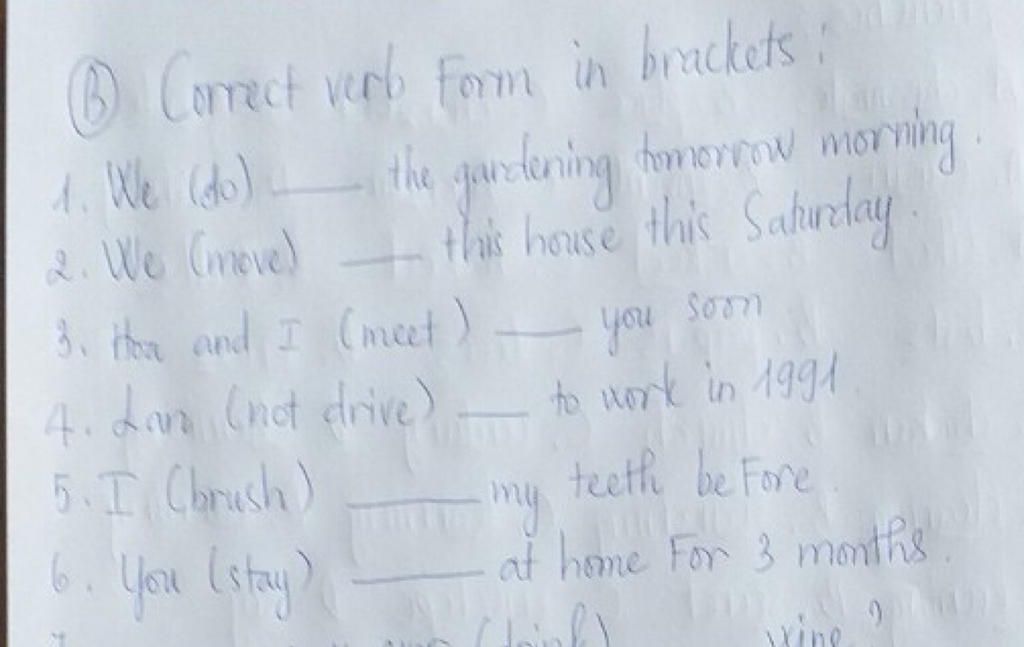 Ⓑ Correct verb Form in brackets:
1. We (do) ____ the gardening tomorrow morning.
2. We (move) ____ this house this Saturday.
3. Hoa and I (meet) ____ you soon
4. Lan (not drive) ____ to work in 1991
5. I (brush) ____ my teeth beFore.
6. You (stay) ____ at home For 3 months.
(drink) wine?